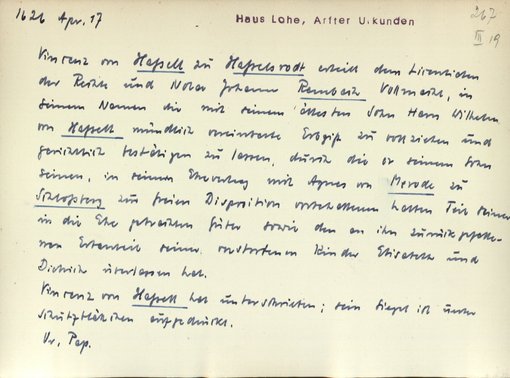 1626 Apr. 17
Haus Lohe, Arfter Urkunden
267
III 19
Vinzenz von Hassell zu Hasselsrodt erteilt dem Lizentiaten
der Rechte und Notar Johannes Rembach Vollmacht, in
seinem Namen die mit seinem ältesten Sohn Hans Wilhelm
von Hassell mündlich vereinbarte zu vollziehen und
gerichtlich bestätigen zu lassen, durch die er seinem Sohn
seinen, in seinem Ehevertrag mit Agnes von Merode zu
Schloßberg zur freien Disposition vorbehaltenen halben Teil seiner
in die Ehe gebrachten Güter sowie den an ihn zurückgefalle-
nen Erbanteil seiner verstorbenen Kinder Elisabeth und
Dietrich überlassen hat.
Vinzenz von Hassell hat unterschrieben; sein Siegel ist unter
Schutzblättchen aufgedrückt.
Or. Pap.